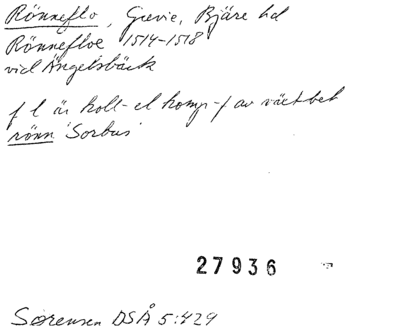 Rönneflo, Grevie, Bjäre hd
Rönnefloe 1514-1518
vid Ängelsbäck
f l är koll- el komp-f av växtbet
rönn 'Sorbus'
27936
Sørensen DSÅ 5:429